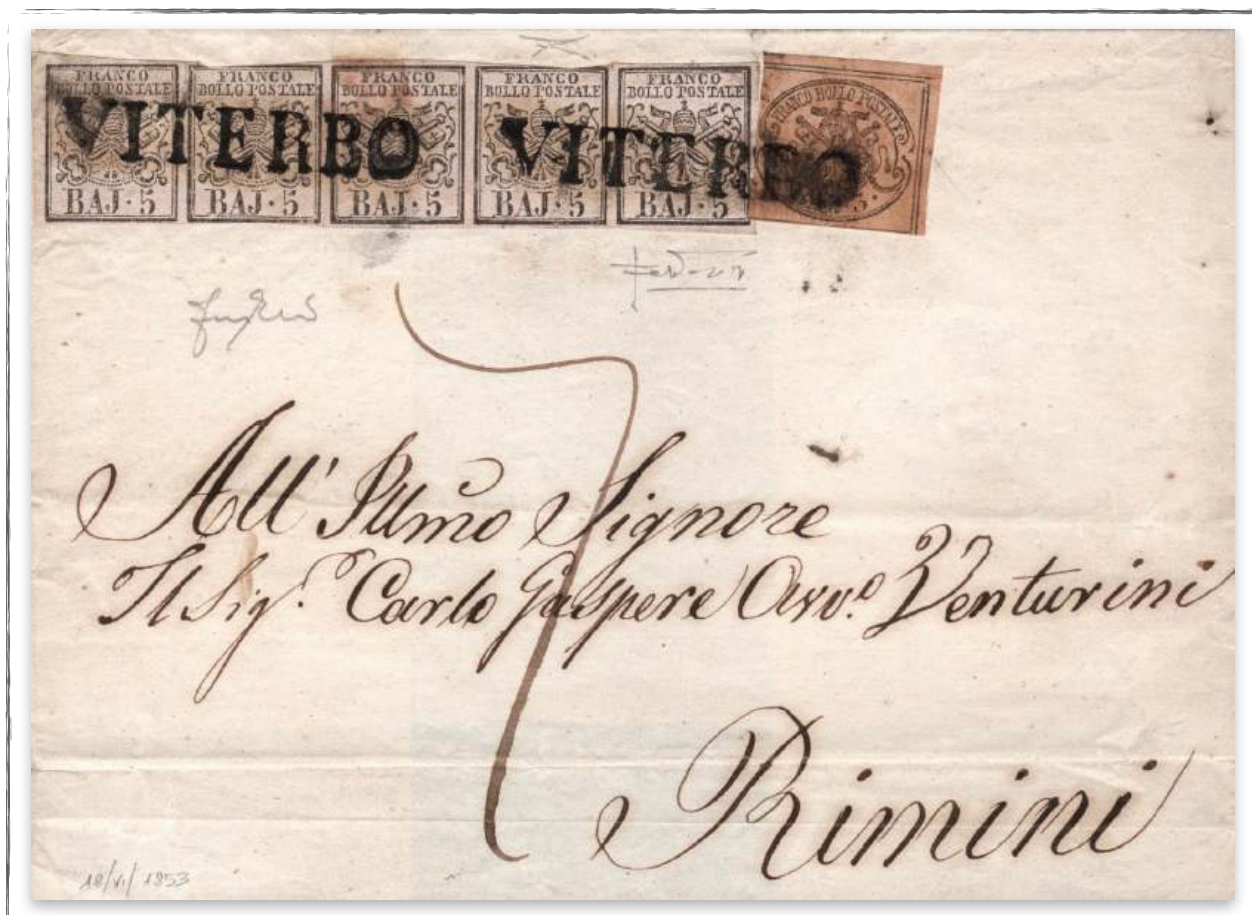 FRANCO BOLLO POSTALE BAJ·5
FRANCO BOLLO POSTALE BAJ·5
FRANCO BOLLO POSTALE BAJ·5
FRANCO BOLLO POSTALE BAJ·5
FRANCO BOLLO POSTALE BAJ·5
FRANCO BOLLO POSTALE
VITERBO VITERBO
7
All' Illmo Signore
Il Sig.r Carlo Gaspere Avv.o Venturini
Rimini
18/VI/1853